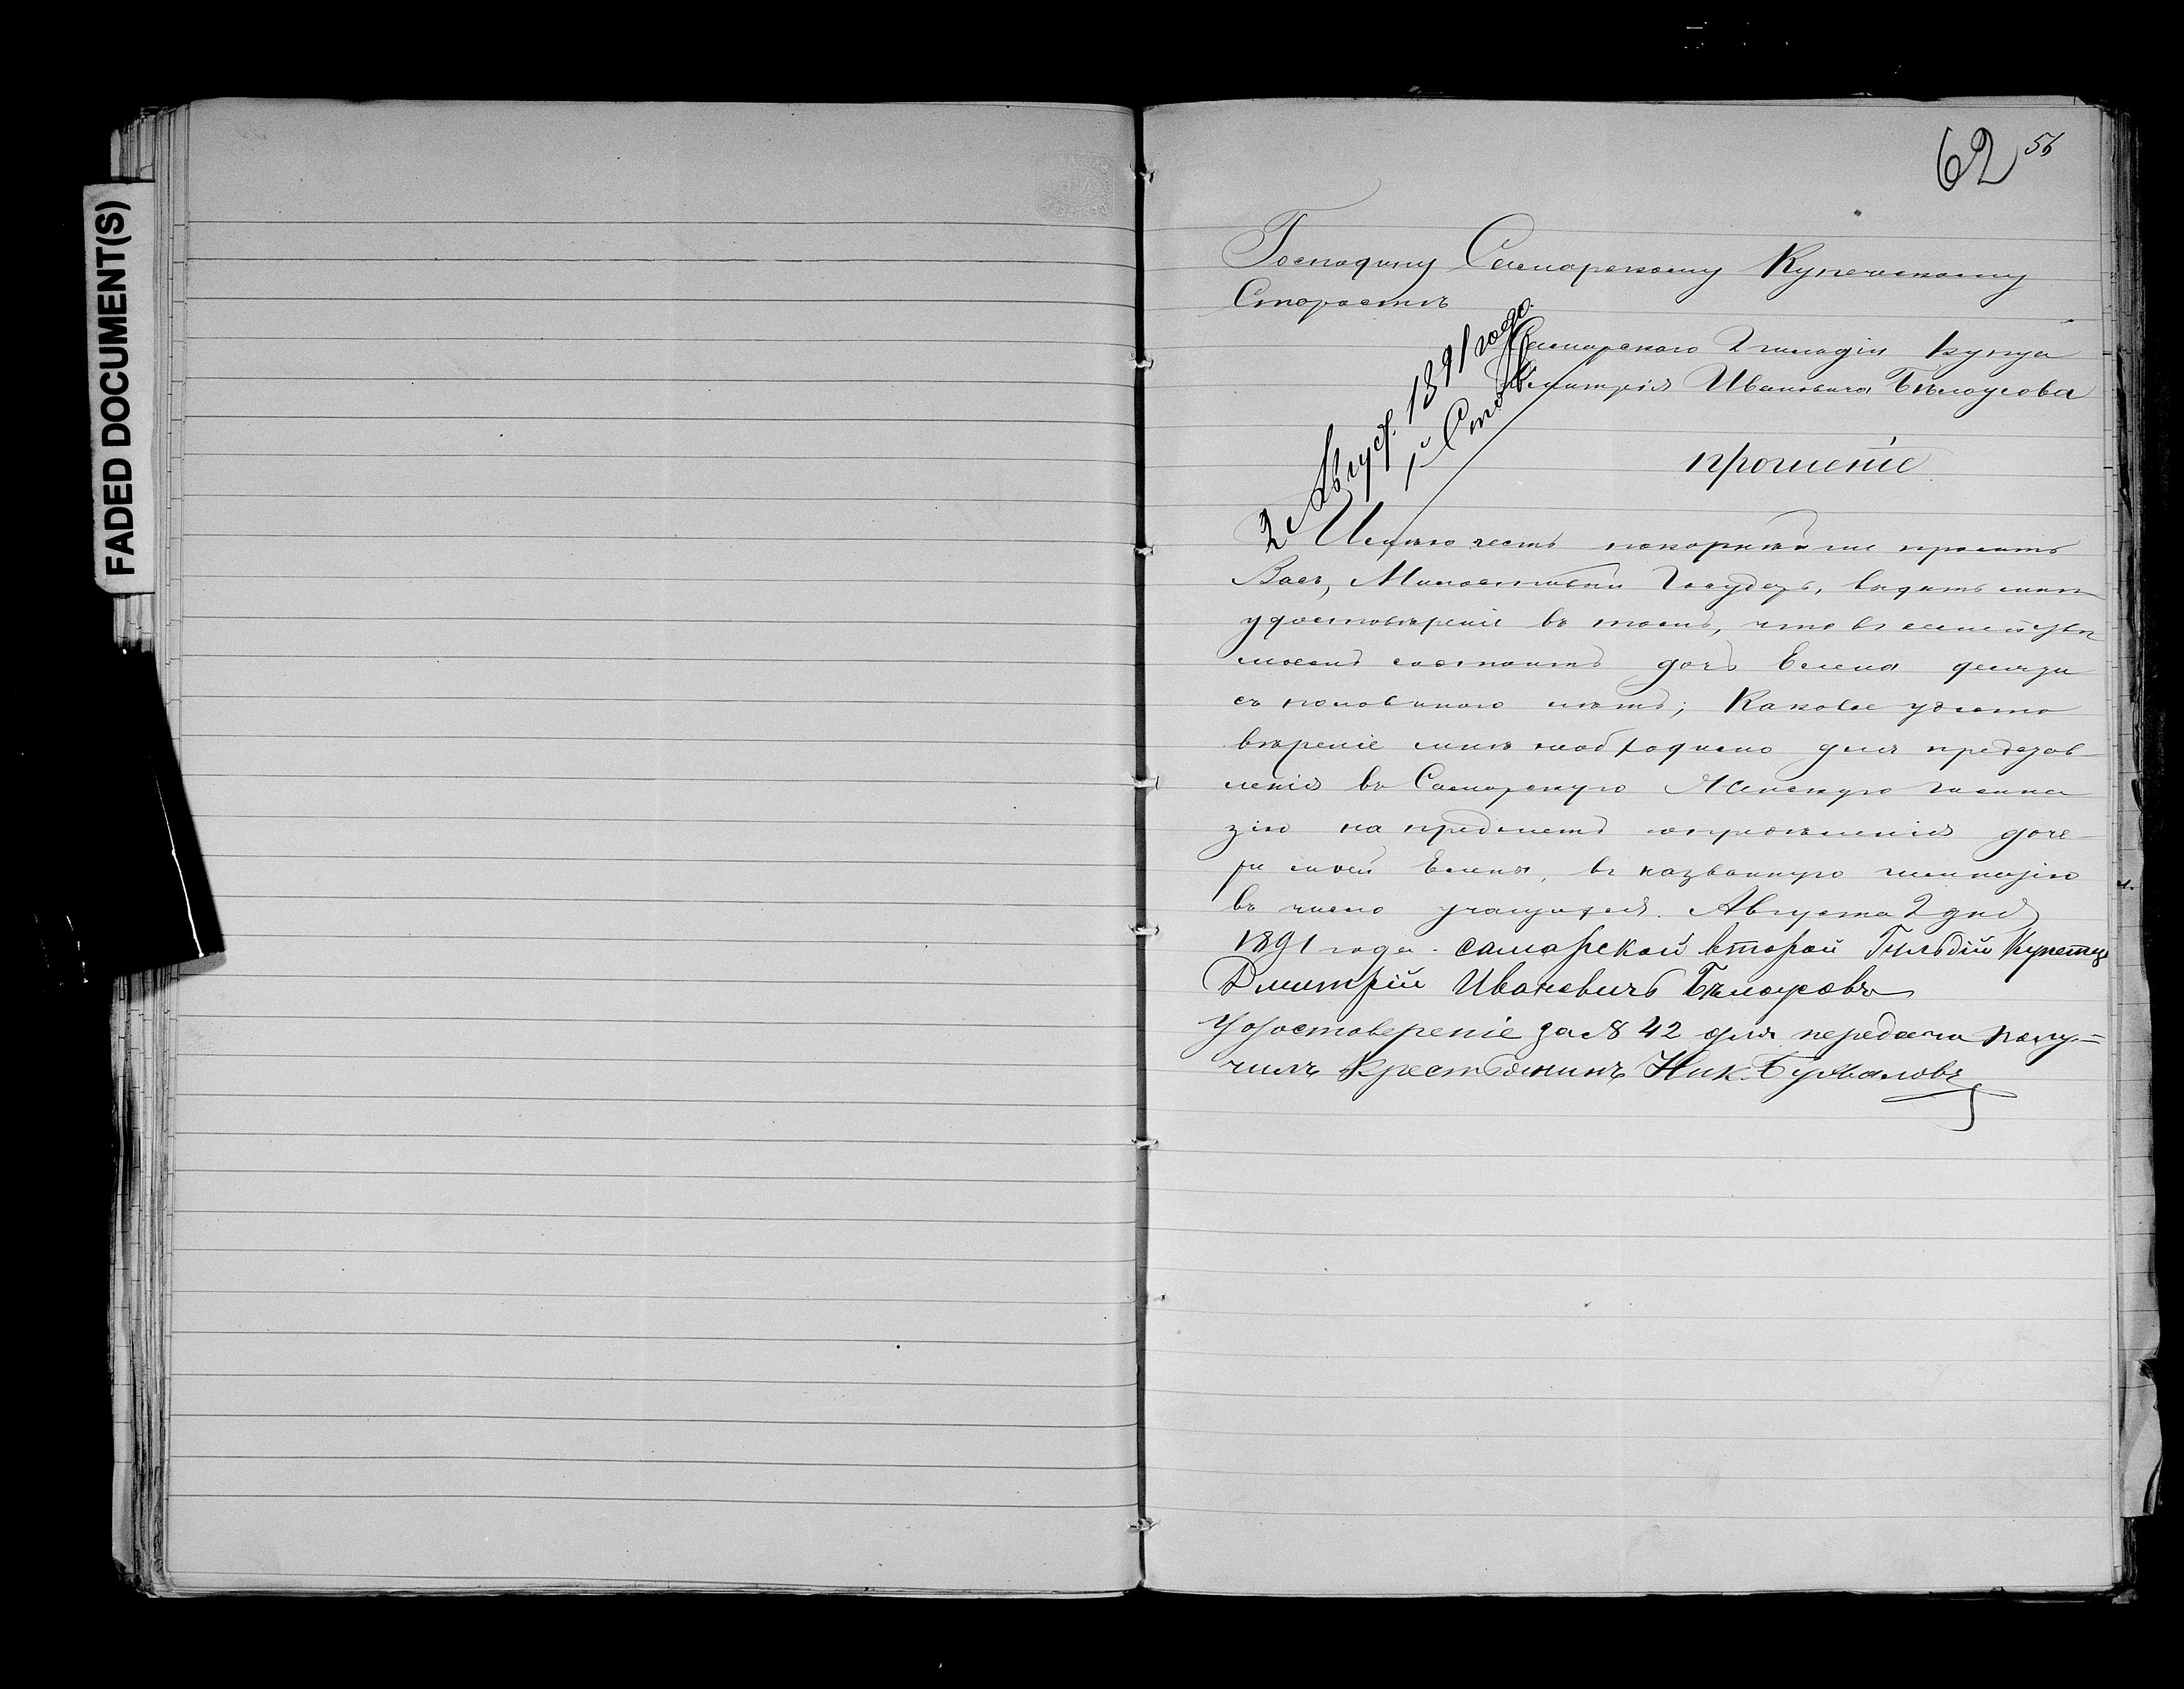 FADED DOCUMENT(S)
62 56
Господину Самарскому Купеческому
Старостѣ
Самарскаго 2 гильдіи купца
Дмитрія Ивановича Бѣлоусова
2 Август. 1891 года.
прошеніе
Имѣю честь покорнѣйше просить
Васъ, Милостивый Государь, выдать мнѣ
удостовѣреніе въ томъ, что въ семействѣ
моемъ состоитъ дочь Елена девяти
съ половиною лѣтъ; Каковое удосто
вѣреніе мнѣ необходимо для представ
ленія въ Самарскую Женскую гимна
зію на предметъ опредѣленія доче
ри моей Елены, въ названную гимназію
въ число учащихся. Августа 2 дня
1891 года. самарской второй Гильдіи Купецъ
Дмитрій Ивановичъ Бѣлоусовъ
Удостовереніе за № 42 для передачи полу=
чилъ Крестьянинъ Ник.